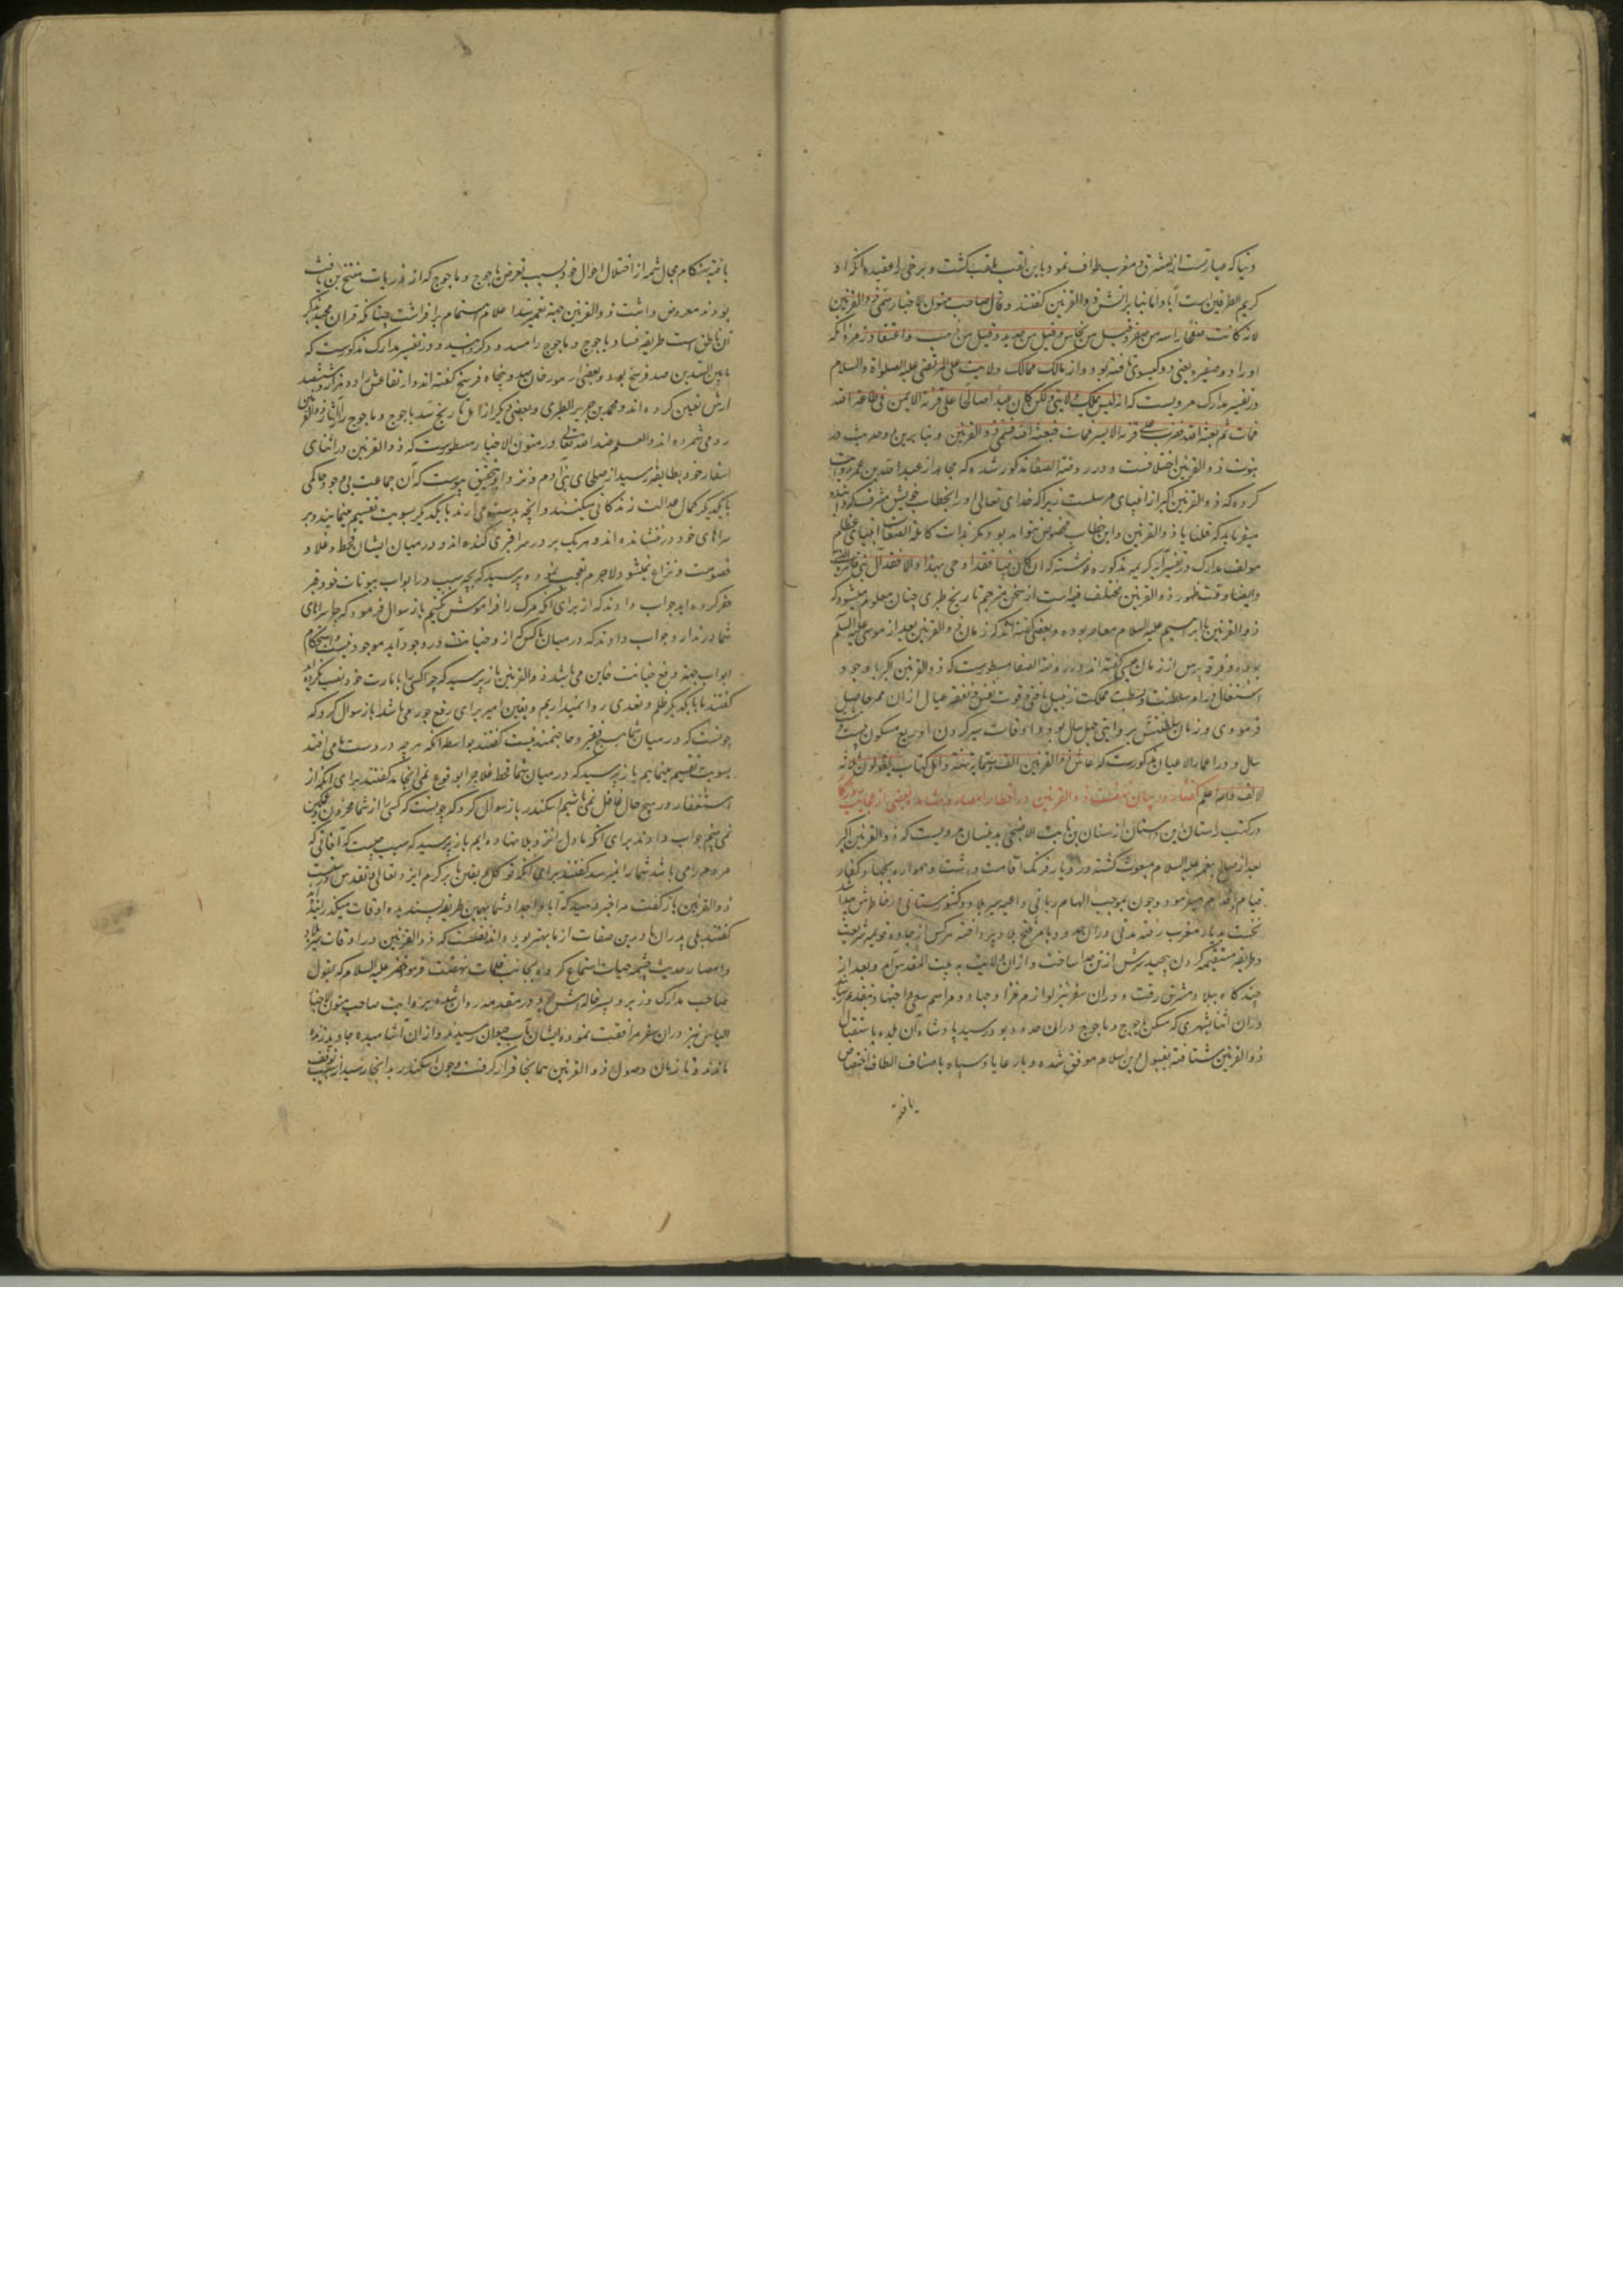 دنیا که عبارتست از مشرق و مغرب طواف نمود باین لقب ملقب گشت و برخی را عقیده آنکه او
کریم الطرفین است اباً و اماً بنابرانش ذو القرنین گفتند و قال صاحب متون الاخبار سمی ذو القرنین
لانه کانت صفحتا راسه من صفر و قیل من نحاس و قیل من حدید و قیل من ذهب و اعتقاد زمره آنکه
او را دو ضفیره یعنی دو گیسوی بافته بود و از مالک ممالک ولایت علی المرتضی علیه الصلواة والسلام
در تفسیر مدارک مرویست که انه لیس بملک ولا نبی ولکن کان عبداً صالحا ضرب علی قرنه الایمن فی طاعة الله
فمات ثم بعثه الله فضرب علی قرنه الایسر فمات فبعثه الله فسمی ذو القرنین و
نبوت ذو القرنین اختلافست و در روضة الصفا مذکور شده که مجاهد از عبد الله بن عمر روایت
کرده که ذو القرنین اکبر از انبیای مرسلست زیرا که خدای تعالی او را بخطاب خویش مشرف گردانیده
میفرماید که قلنا یا ذو القرنین و این خطاب مخصوص نتواند بود مگر بذات کاملة الصفات انبیای عظام
مولف مدارک در تفسیر آیه کریمه مذکوره نوشته که ان کان نبیا فقد اوحی بهذا والا فقد
وایضا وقت ظهور ذو القرنین مختلف فیه است از سخن مترجم تاریخ طبری چنان معلوم میشود که
ذو القرنین با ابراهیم علیه السلام معاصر بوده و بعضی گفته اند که زمان ذو القرنین بعد از موسی علیه السلام
بوده و فرقه پس از زمان عیسی گفته اند در روضة الصفا مسطورست که ذو القرنین اکبر با وجود
اشتغال بامر سلطنت و بسطت مملکت زنبیل بافتی و قوت نفس و نفقه عیال از آن ممر حاصل
فرمودی و زمان سلطنتش بروایتی چهل سال بود و اوقات سیر کردن او ربع مسکون
سال و در اعمار الاعیان مذکورست که عاش ذو القرنین الف و ستمایة سنة و اهل کتاب یقولون ثلاثة
الاف والله اعلم گفتار در بیان نهضت ذو القرنین در اقطار امصار و مشاهده بعضی از عجایب روزگار
در کتب راستان این داستان از سنان بن ثابت بدینسان مرویست که ذو القرنین اکبر
بعد از صالح پیغمبر علیه السلام مبعوث گشته در دیار فرنگ اقامت داشت و همواره بجهاد کفار
قیام و اقدام میفرمود و چون بموجب الهام ربانی داعیه سیر بلاد و کشورستانی از خاطرش پیدا شد
نخست بدیار مغرب رفته مدتی در آن حدود بامر فتح بلاد پرداخته هر کس از جاده قویمه شریعت
و طریقه مستقیمه گردن پیچید سرش از تن جدا ساخت و از آن ولایت به بیت المقدس آمد و بعد از
چندگاه ببلاد مشرق رفت و در آن سفر نیز لوازم غزا و جهاد و مراسم سعی و اجتهاد بتقدیم رسانید
در آن اثنا بشهری که مسکن یاجوج و ماجوج در آن حدود بود رسید پادشاه آن بلده باستقبال
ذو القرنین شتافته بقبول دین اسلام موفق شده و با رعایا و سپاه باصناف الطاف اختصاص
یافته
یافته بهنگام مجال شمه از اختلال احوال خود بسبب تعرض یاجوج و ماجوج که از ذریات بن یافث
بودند معروض داشت ذو القرنین جهة تعمیر سد اعلام اهتمام برافراشت چنانکه قران مجید بذکر
آن ناطق است طریقه فساد یاجوج و ماجوج را مسدود گردانید و در تفسیر مدارک مذکورست که
ما بین السدین صد فرسخ بود و بعضی از مورخان صد و پنجاه فرسخ گفته اند و ارتفاعش را
ارش تعین کرده اند و محمد بن جریر الطبری و بعضی دیگر از اهل تاریخ سد یاجوج و ماجوج را از آثار ذو القرنین
رومی شمرده اند والعلم عند الله تعالی در متون الاخبار مسطورست که ذو القرنین در اثنای
اسفار خود بطایفه رسید از صلحای بنی آدم و نزد او بتحقیق پیوست که آن جماعت بی وجود حاکمی
با یکدیگر بکمال عدالت زندگانی میکنند و آنچه بدست می آرند با یکدیگر بسویت تقسیم مینمایند و بر
سراهای خود در ننشانده اند و هر یک بر در سرا قبری کنده اند و در میان ایشان قحط و غلا و
خصومت و نزاع نمیشود لاجرم تعجب نموده پرسید که بچه سبب در ابواب بیوتات خود قبر
حفر کرده اید جواب دادند که از برای آنکه مرگ را فراموش نکنیم باز سوال فرمود که چرا سراهای
شما در ندارد جواب دادند که در میان ما کسی که از و خیانت در وجود آید موجود نیست و استحکام
ابواب جهة دفع خیانت خاین می باشد ذو القرنین باز پرسید که چرا کسی را بامارت خود نصب نکرده اید
گفتند ما با یکدیگر ظلم و تعدی روا نمیداریم و تعین امیر برای رفع جور می باشد باز سوال کرد که
چونست که در میان شما هیچ فقیر و حاجتمند نیست گفتند بواسطه آنکه هر چه در دست ما می افتد
بسویت تقسیم مینمائیم باز پرسید که در میان شما قحط و غلا چرا بوقوع نمی انجامد گفتند برای آنکه از
استغفار در هیچ حال غافل نمی باشیم اسکندر باز سوال کرد که چونست که کسی را از شما محزون و غمگین
نمی بینم جواب دادند برای آنکه ما دل بر بلا نهاده ایم باز پرسید که سبب چیست که آفاتی که
مردم را می باشد شما را نمیرسد گفتند برای آنکه توکل و یقین ما بر کرم ایزد تعالی و تقدس
ذو القرنین باز گفت مرا خبر دهید که آبا و اجداد شما بهمین طریقه پسندیده اوقات میگذرانیدند
گفتند بلی پدران ما درین صفات از ما بهتر بوده اند نقلست که ذو القرنین در اوقات سیر بلاد
و امصار حدیث چشمه حیات استماع کرده بجانب ظلمات نهضت فرمود و خضر علیه السلام که بقول
صاحب مدارک وزیر و پسر خاله اش بود در مقدمه روان شد و بروایت صاحب متون الاخبار
الیاس نیز در آن سفر مرافقت نموده ایشان بآب حیوان رسیدند و از آن آشامیده جاوید زنده
ماندند و تا زمان وصول ذو القرنین همانجا قرار گرفتند و چون اسکندر بدانجا رسید از